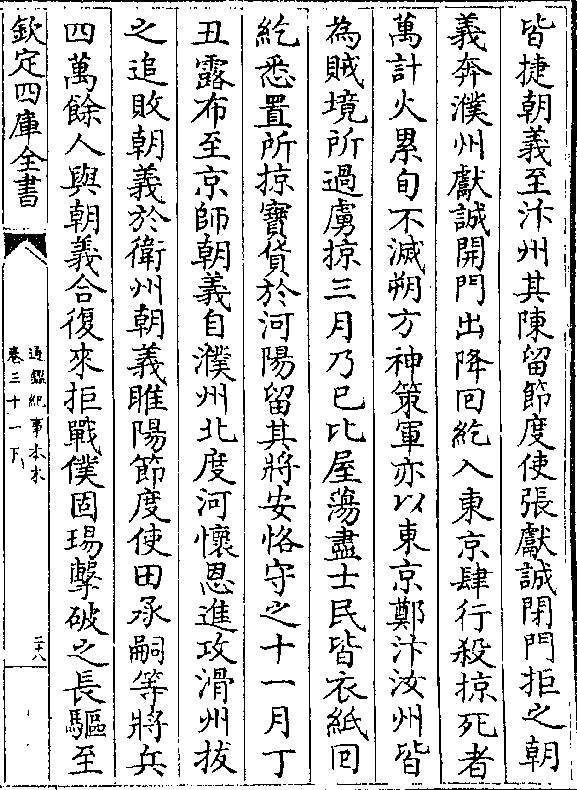 皆捷朝義至汴州其陳留節度使張獻誠閉門拒之朝
義奔濮州獻誠開門出降回紇入東京肆行殺掠死者
萬計火累旬不滅朔方神策軍亦以東京鄭汴汝州皆
為賊境所過虜掠三月乃已比屋蕩盡士民皆衣紙回
紇悉置所掠寶貨於河陽留其將安恪守之十一月丁
丑露布至京師朝義自濮州北度河懷恩進攻滑州拔
之追敗朝義於衛州朝義睢陽節度使田承嗣等將兵
四萬餘人與朝義合復來拒戰僕固瑒擊破之長驅至
欽定四庫全書
通鑑紀事本末
卷三十一下
二十八